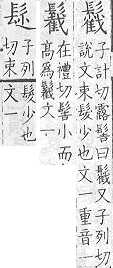 子計切露髻曰又子列切
說文束髮少也文一重音一
在禮切髻小而
高為文一
子列
切束
髮少也
文一